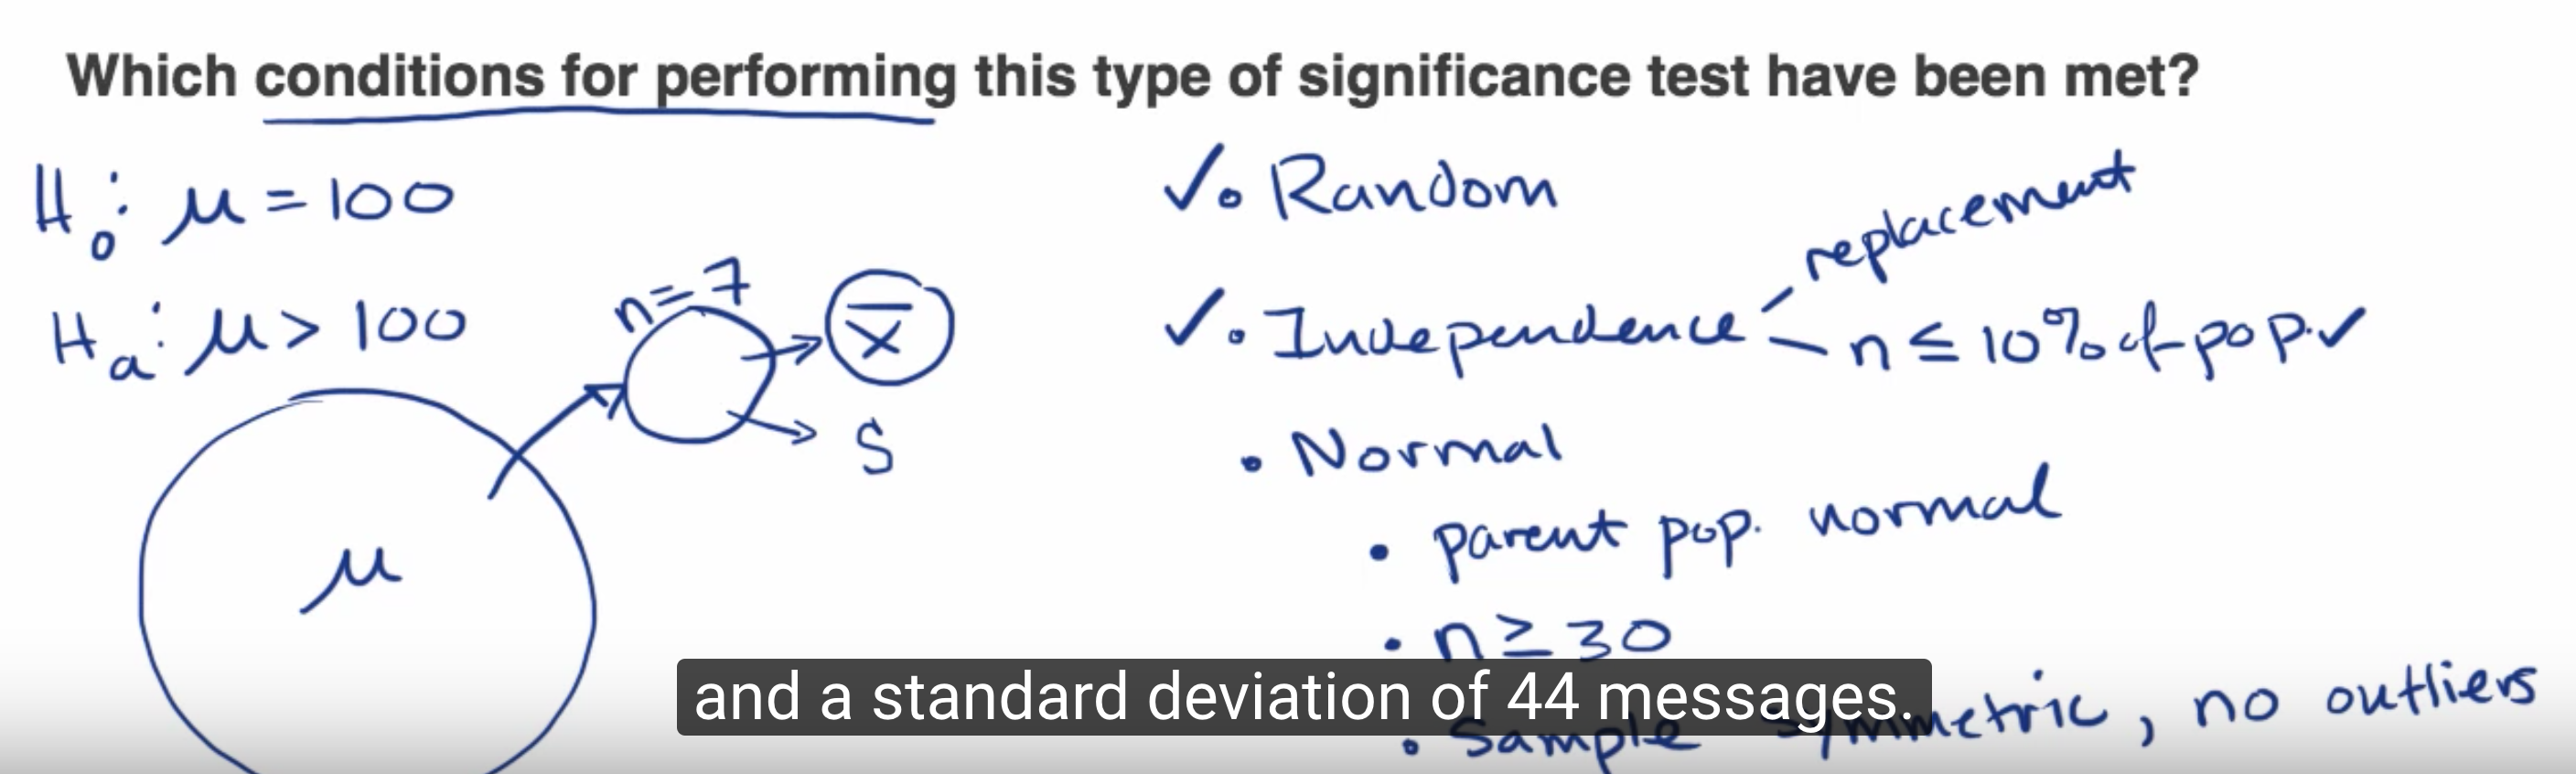 Which conditions for performing this type of significance test have been met?
H₀: μ = 100
Hₐ: μ > 100
n = 7
x̄
S
μ
✓• Random
✓• Independence
replacement
n ≤ 10% of pop. ✓
• Normal
• parent pop. normal
• n ≥ 30
• Sample symmetric, no outliers
and a standard deviation of 44 messages.